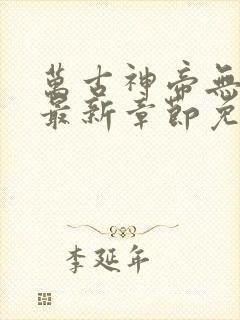 萬古神帝無
最新章節免
李延年